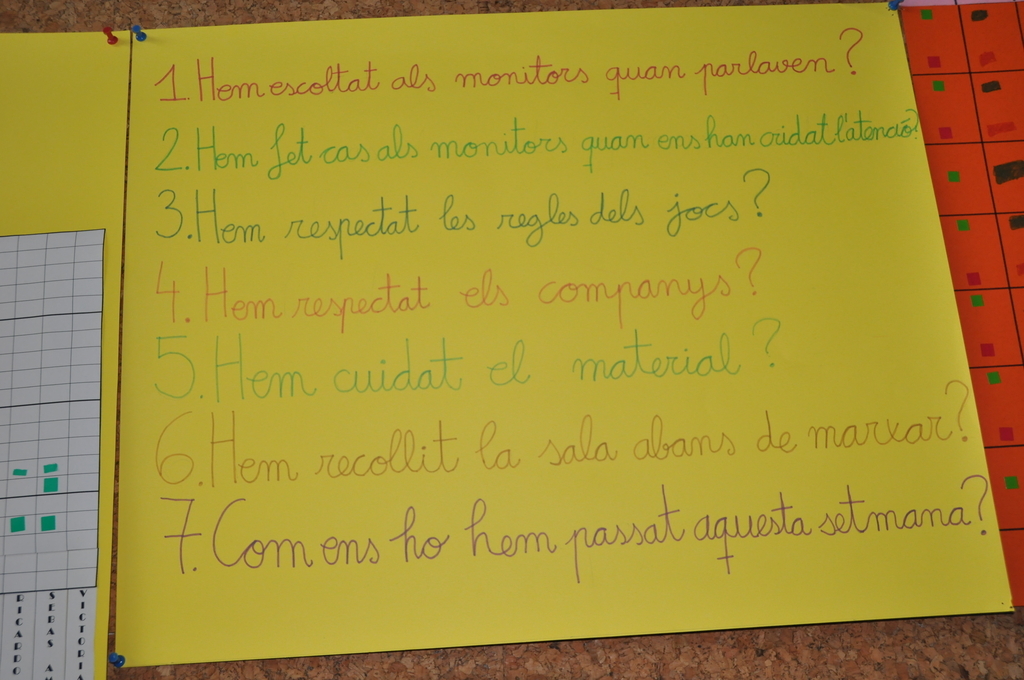 1. Hem escoltat als monitors quan parlaven?
2. Hem fet cas als monitors quan ens han cridat l'atenció?
3. Hem respectat les regles dels jocs?
4. Hem respectat els companys?
5. Hem cuidat el material?
6. Hem recollit la sala abans de marxar?
7. Com ens ho hem passat aquesta setmana?
RICARDO
SEBAS
VICTORIA